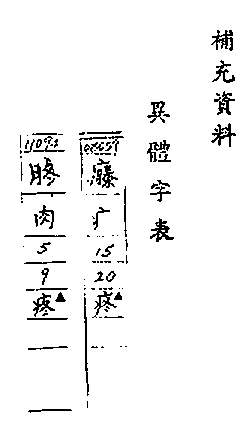 補充資料
異體字表
疒
15
20
疼▲
肉
5
9
疼▲